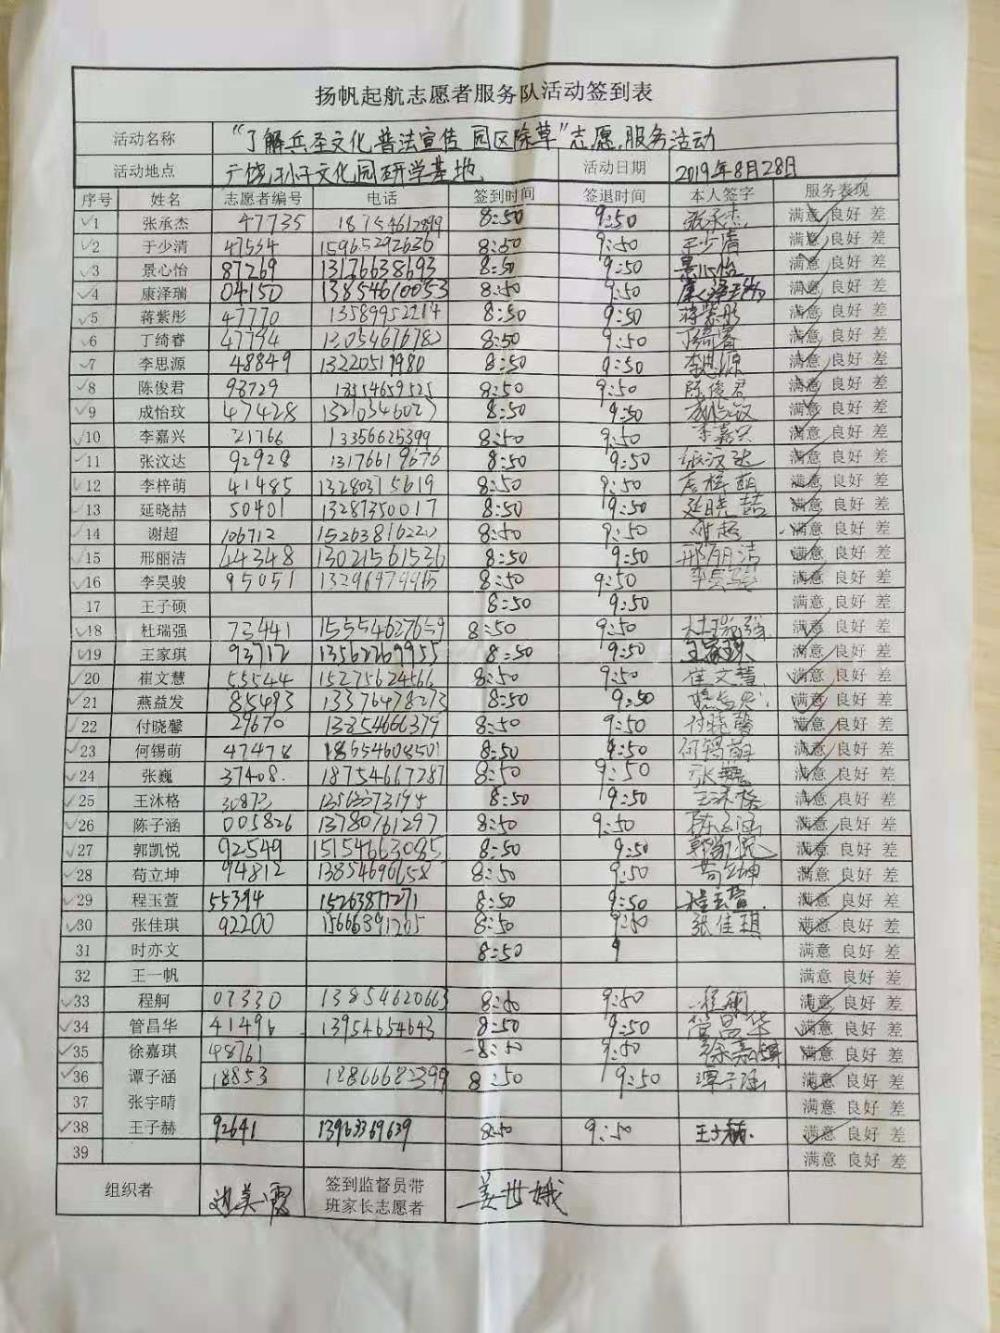 扬帆起航志愿者服务队活动签到表
活动名称 "了解兵圣文化,普法宣传,园区除草"志愿服务活动
活动地点 广饶孙子文化园研学基地 活动日期 2019年8月28日
序号 姓名 志愿者编号 电话 签到时间 签退时间 本人签字 服务表现
1 张承杰 47735 18754612899 8:50 9:50 张承杰 满意 良好 差
2 于少清 47534 15965292636 8:50 9:50 于少清 满意 良好 差
3 景心怡 87269 13126638693 8:50 9:50 景心怡 满意 良好 差
4 康泽瑞 04150 13854610053 8:50 9:50 康泽瑞 满意 良好 差
5 蒋紫彤 47770 13589952214 8:50 9:50 蒋紫彤 满意 良好 差
6 丁绮睿 47794 13054676782 8:50 9:50 丁绮睿 满意 良好 差
7 李思源 48849 13220517980 8:50 9:50 李思源 满意 良好 差
8 陈俊君 98729 8:50 9:50 陈俊君 满意 良好 差
9 成怡玟 47428 13210346027 8:50 9:50 满意 良好 差
10 李嘉兴 21766 13356625399 8:50 9:50 李嘉兴 满意 良好 差
11 张汶达 92928 13176619676 8:50 9:50 张汶达 满意 良好 差
12 李梓萌 41485 13280315619 8:50 9:50 李梓萌 满意 良好 差
13 延晓喆 50401 13287350017 8:50 9:50 延晓喆 满意 良好 差
14 谢超 106712 15263816220 8:50 9:50 谢超 满意 良好 差
15 邢丽洁 44348 13021561536 8:50 9:50 邢丽洁 满意 良好 差
16 李昊骏 95051 8:50 9:50 满意 良好 差
17 王子硕 8:50 9:50 满意 良好 差
18 杜瑞强 73441 15554627659 8:50 9:50 杜瑞强 满意 良好 差
19 王家琪 93712 13562269955 8:50 9:50 王家琪 满意 良好 差
20 崔文慧 55544 15275624566 8:50 9:50 崔文慧 满意 良好 差
21 燕益发 85493 13376478273 8:50 9:50 满意 良好 差
22 付晓馨 29670 13254666379 8:50 9:50 付晓馨 满意 良好 差
23 何锡萌 47478 18654608501 8:50 9:50 何锡萌 满意 良好 差
24 张巍 37408. 18754667287 8:50 9:50 张巍 满意 良好 差
25 王沐格 30873 13563373194 8:50 9:50 王沐格 满意 良好 差
26 陈子涵 005826 13780761297 8:50 9:50 陈子涵 满意 良好 差
27 郭凯悦 92549 15154663085 8:50 9:50 郭凯悦 满意 良好 差
28 苟立坤 94812 13854696158 8:50 9:50 苟立坤 满意 良好 差
29 程玉萱 55394 15263877271 8:50 9:50 程玉萱 满意 良好 差
30 张佳琪 92200 15666391205 8:50 9:50 张佳琪 满意 良好 差
31 时亦文 8:50 9 满意 良好 差
32 王一帆 满意 良好 差
33 程舸 07330 13854620663 8:50 9:50 程舸 满意 良好 差
34 管昌华 41496 13954654643 8:50 9:50 管昌华 满意 良好 差
35 徐嘉琪 48761 8:50 9:50 徐嘉琪 满意 良好 差
36 谭子涵 18853 18866682399 8:50 9:50 谭子涵 满意 良好 差
37 张宇晴 满意 良好 差
38 王子赫 92641 13963369639 8:50 9:50 王子赫. 满意 良好 差
39 满意 良好 差
组织者 边美霞 签到监督员带 姜世娥
班家长志愿者